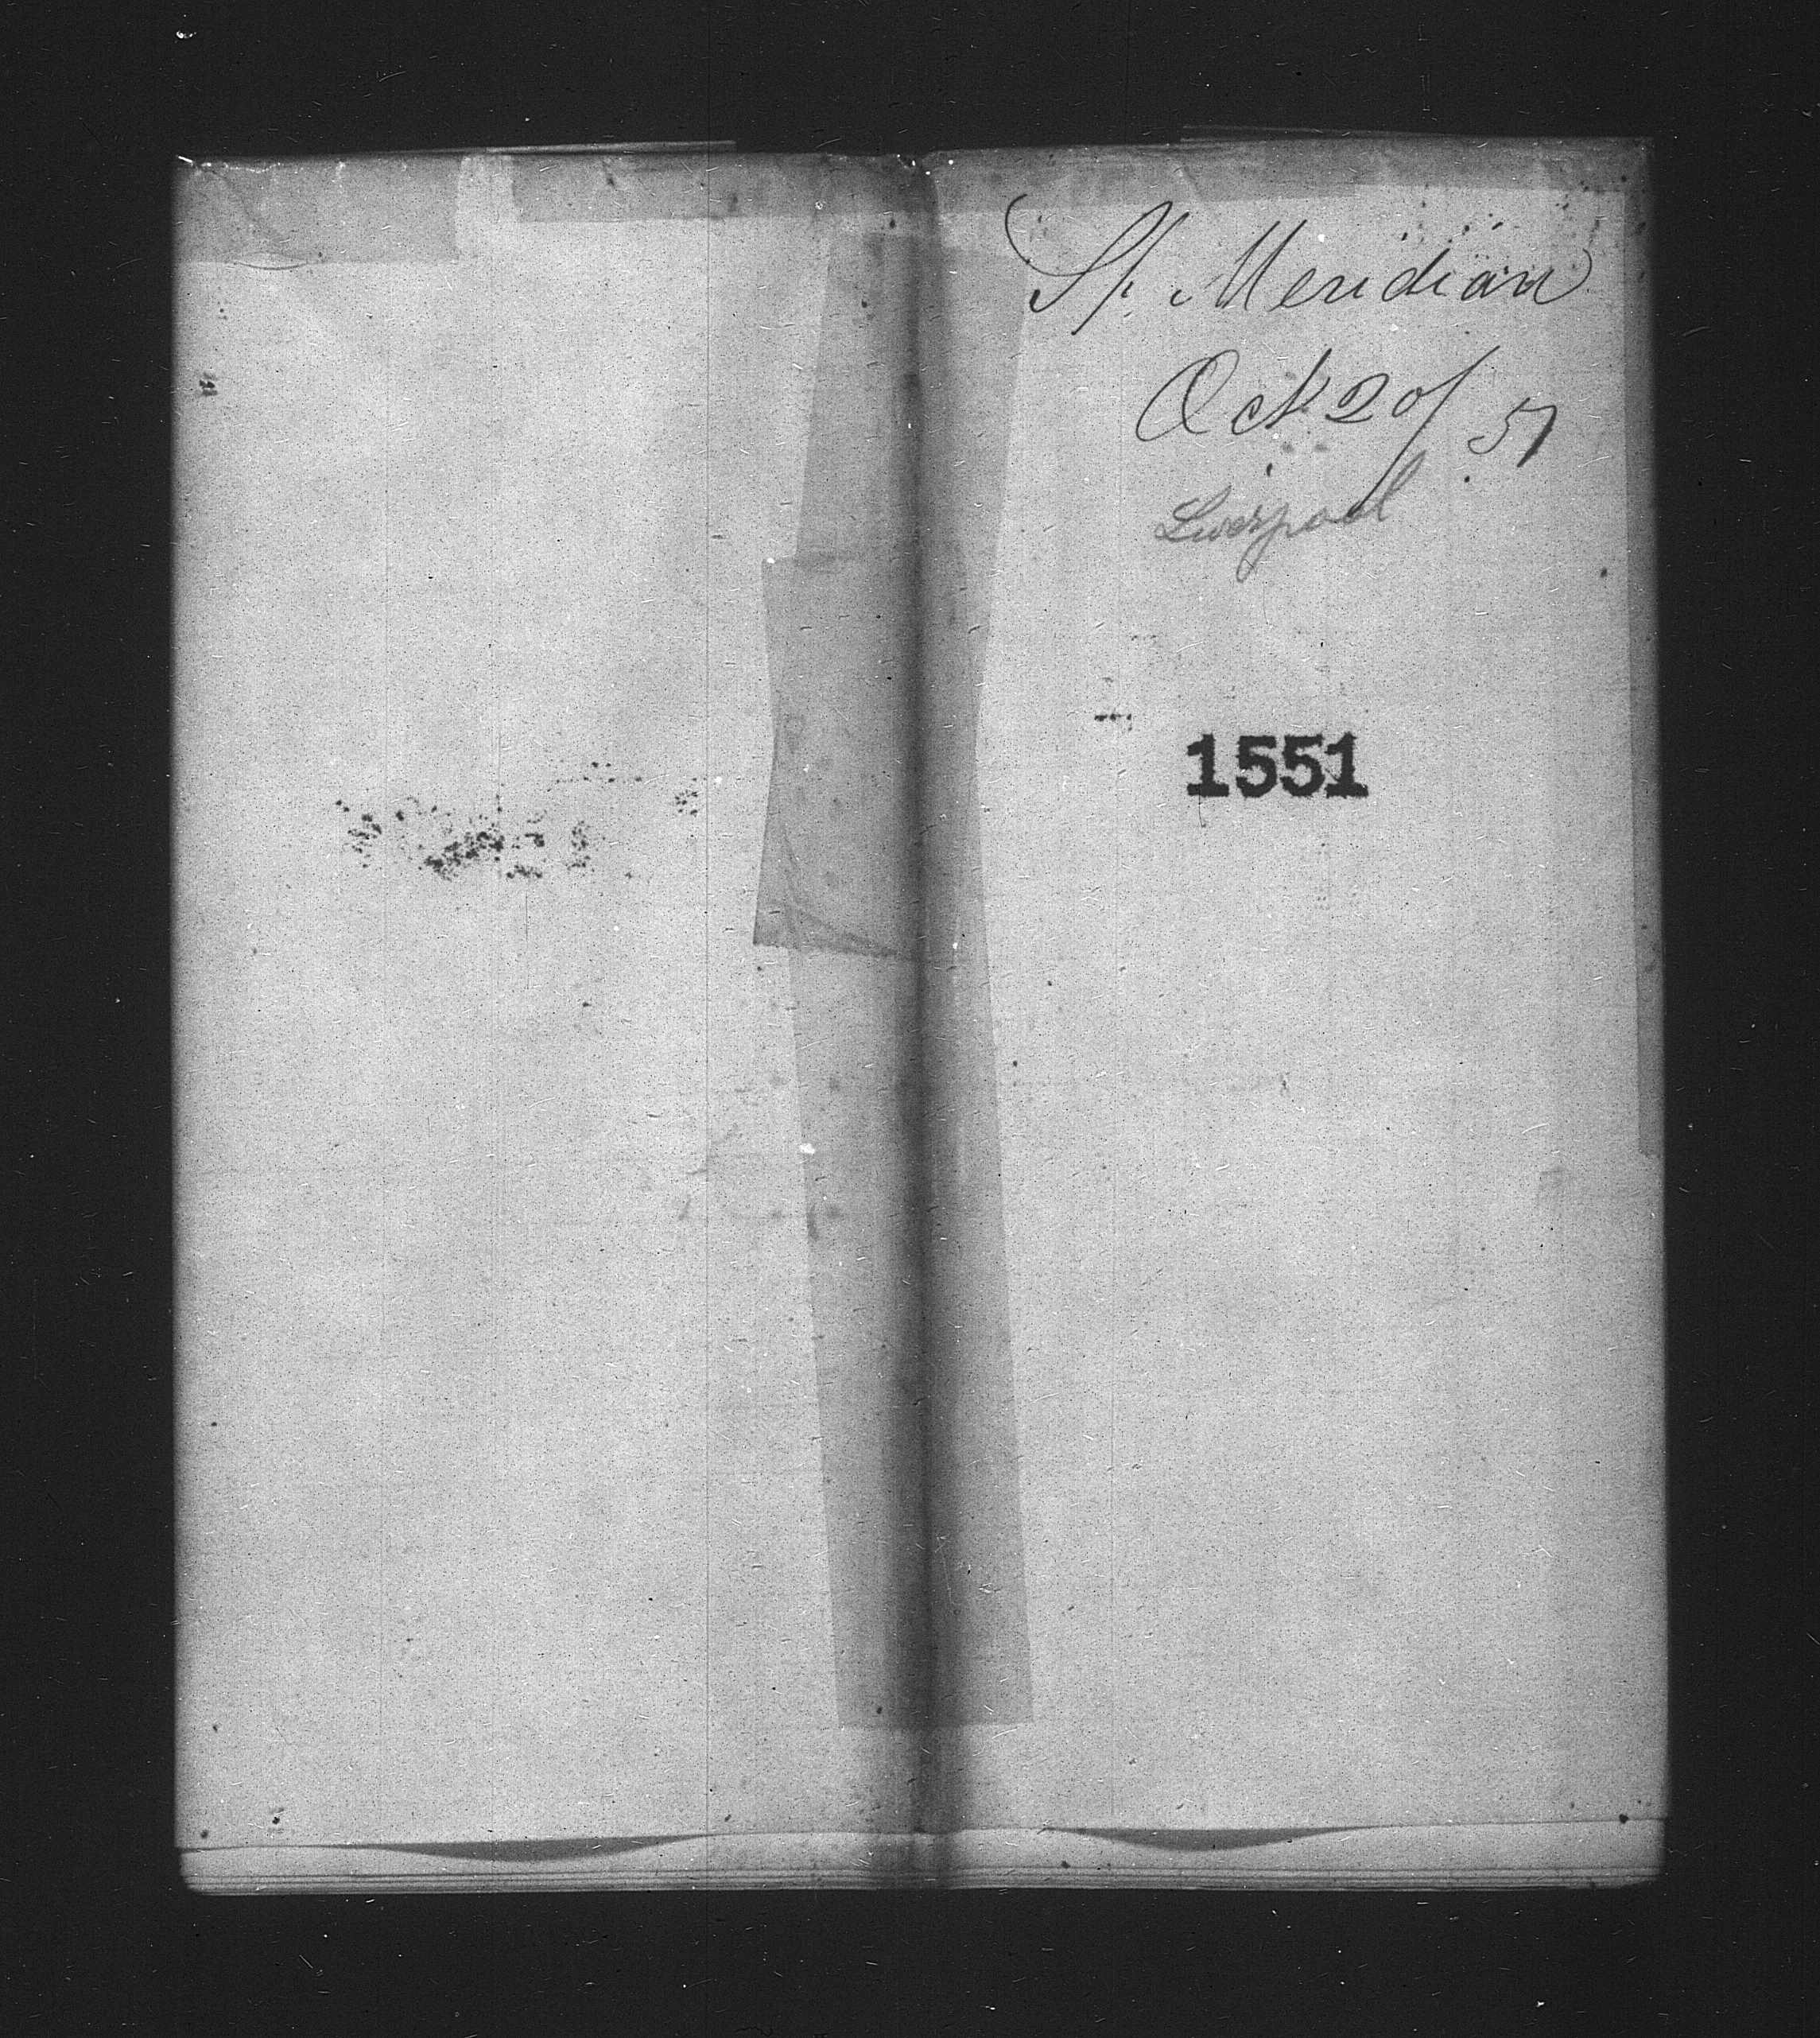 Sp. Meridian
Oct 20/51
Liverpool
1551